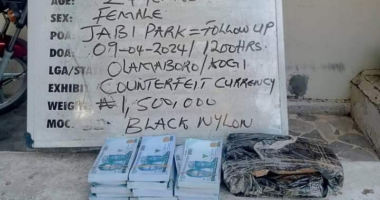 AGE:
SEX: FEMALE
POA: JABI PARK = FOLLOW UP
DOA: 09-04-2024/1200HRS.
LGA/STA OLAMABORO/KOGI
EXHIBIT COUNTERFEIT CURRENCY
WEIG ₦1,500,000
MOC. BLACK NYLON